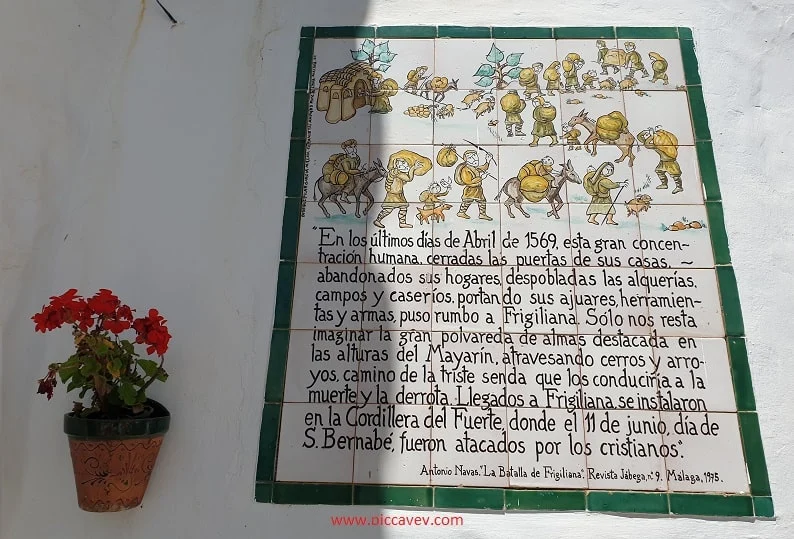 "En los últimos días de Abril de 1569, esta gran concen-
tración humana, cerradas las puertas de sus casas, ~
abandonados sus hogares, despobladas las alquerías,
campos y caseríos, portando sus ajuares, herramien-
tas y armas, puso rumbo a Frigiliana. Sólo nos resta
imaginar la gran polvareda de almas destacada en
las alturas del Mayarín, atravesando cerros y arro-
yos, camino de la triste senda que los conduciría a la
muerte y la derrota. Llegados a Frigiliana, se instalaron
en la Cordillera del Fuerte, donde el 11 de junio, día de
S. Bernabé, fueron atacados por los cristianos".
Antonio Navas. "La Batalla de Frigiliana". Revista Jábega, nº 9. Málaga, 1975.
www.piccavey.com